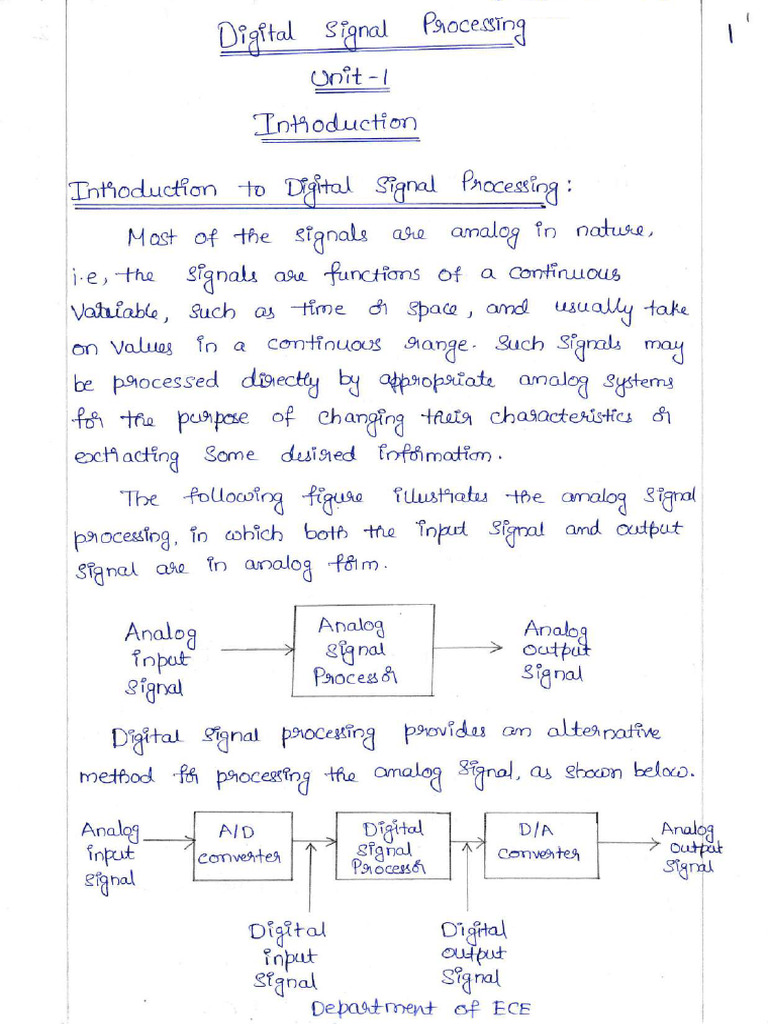 1
1
Digital Signal Processing
Unit-1
Introduction
Introduction to Digital Signal Processing:
Most of the signals are analog in nature,
i.e, the signals are functions of a continuous
Variable, such as time or space, and usually take
on values in a continuous range. Such signals may
be processed directly by appropriate analog systems
for the purpose of changing their characteristics or
extracting some desired information.
The following figure illustrates the analog signal
processing, in which both the input signal and output
signal are in analog form.
Analog
input
signal
Analog
Signal
Processor
Analog
output
signal
Digital signal processing provides an alternative
method for processing the analog signal, as shown below.
Analog
input
signal
A/D
converter
Digital
Signal
Processor
D/A
converter
Analog
output
signal
Digital
input
signal
Digital
output
signal
Department of ECE